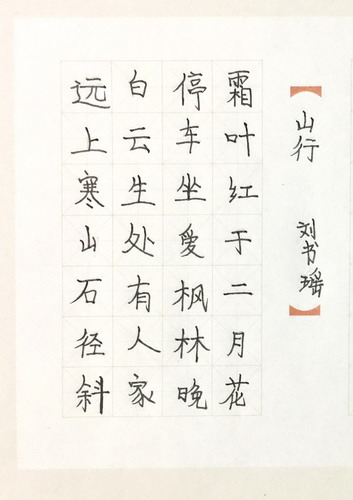 山行
刘书瑶
远上寒山石径斜
白云生处有人家
停车坐爱枫林晚
霜叶红于二月花